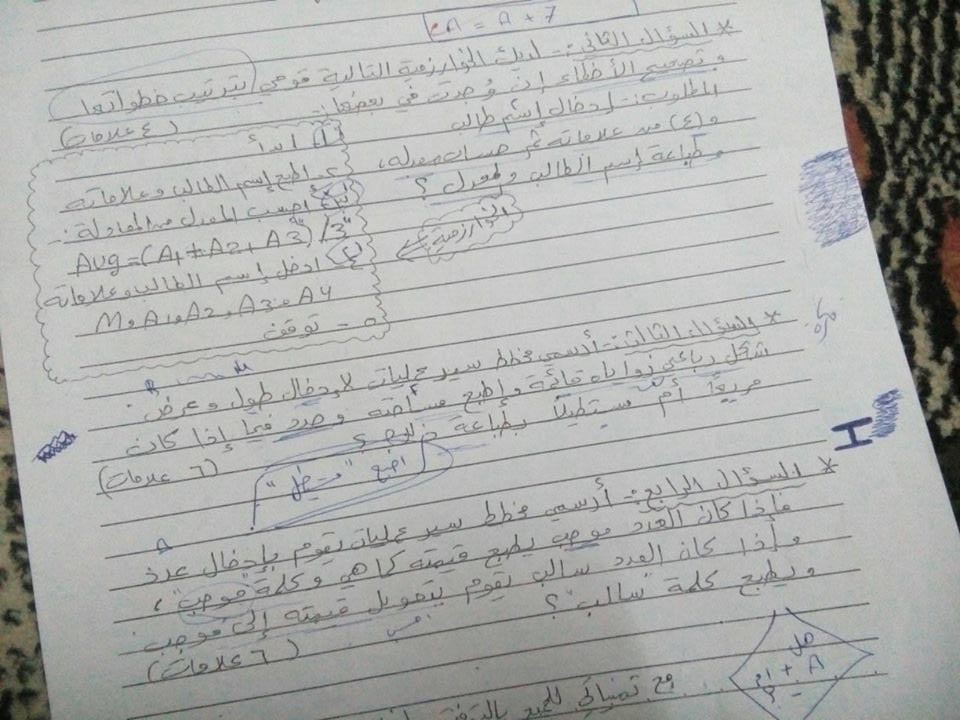 A = A + 7
* السؤال الثاني :- لديك الخوارزمية التالية قومي بترتيب خطواتها
وتصحيح الأخطاء إن وُجدت في بعضها :-
(٤ علامات)
المطلوب :- إدخال إسم طالب
و(٤) من علاماته ثم حساب معدله،
وطباعة إسم الطالب والمعدل ؟
الخوارزمية
١- ابدأ
٢- اطبع إسم الطالب وعلاماته
٣- احسب المعدل من المعادلة :-
Avg = (A1 + A2 + A3) / 3
٤- ادخل إسم الطالب وعلاماته
M, A1, A2, A3, A4
٥- توقف
* السؤال الثالث :- أرسمي مخطط سير عمليات لإدخال طول وعرض
شكل رباعي زواياه قائمة واطبع مساحته وحدد فيما إذا كان
مربعاً أم مستطيلاً بطباعة ذلك ؟
(٦ علامات)
اطبع "مستطيل"
* السؤال الرابع :- أرسمي مخطط سير عمليات يقوم بإدخال عدد
فإذا كان العدد موجب يطبع قيمته كما هي وكلمة "موجب"،
وإذا كان العدد سالب يقوم بتحويل قيمته إلى موجب
ويطبع كلمة "سالب" ؟
(٦ علامات)
هل
A +
مع تمنياتي للجميع بالتوفيق